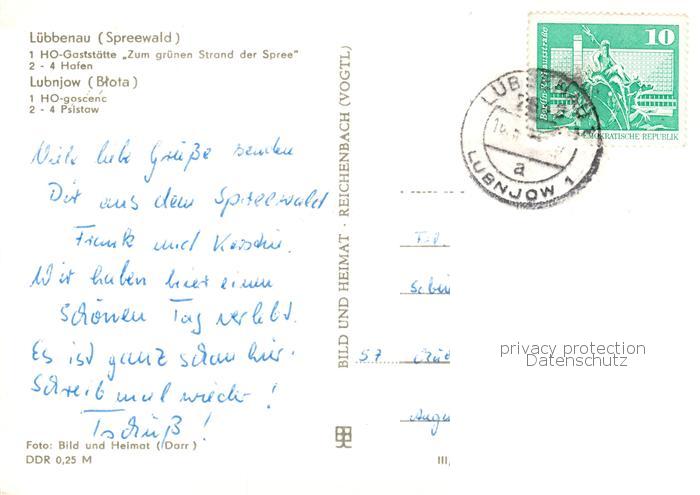 Lübbenau (Spreewald)
1 HO-Gaststätte „Zum grünen Strand der Spree"
2 - 4 Hafen
Lubnjow (Błota)
1 HO-gosćenc
2 - 4 Pśistaw
Viele liebe Grüße senden
Dir aus dem Spreewald
Frank und Kerstin.
Wir haben hier einen
schönen Tag verlebt.
Es ist ganz schön hier.
Schreib mal wieder!
Tschüß!
Foto: Bild und Heimat (Darr)
DDR 0,25 M
BILD UND HEIMAT · REICHENBACH (VOGTL)
10
DEMOKRATISCHE REPUBLIK
LÜBBENAU
LUBNJOW 1
a
57
III,
privacy protection
Datenschutz